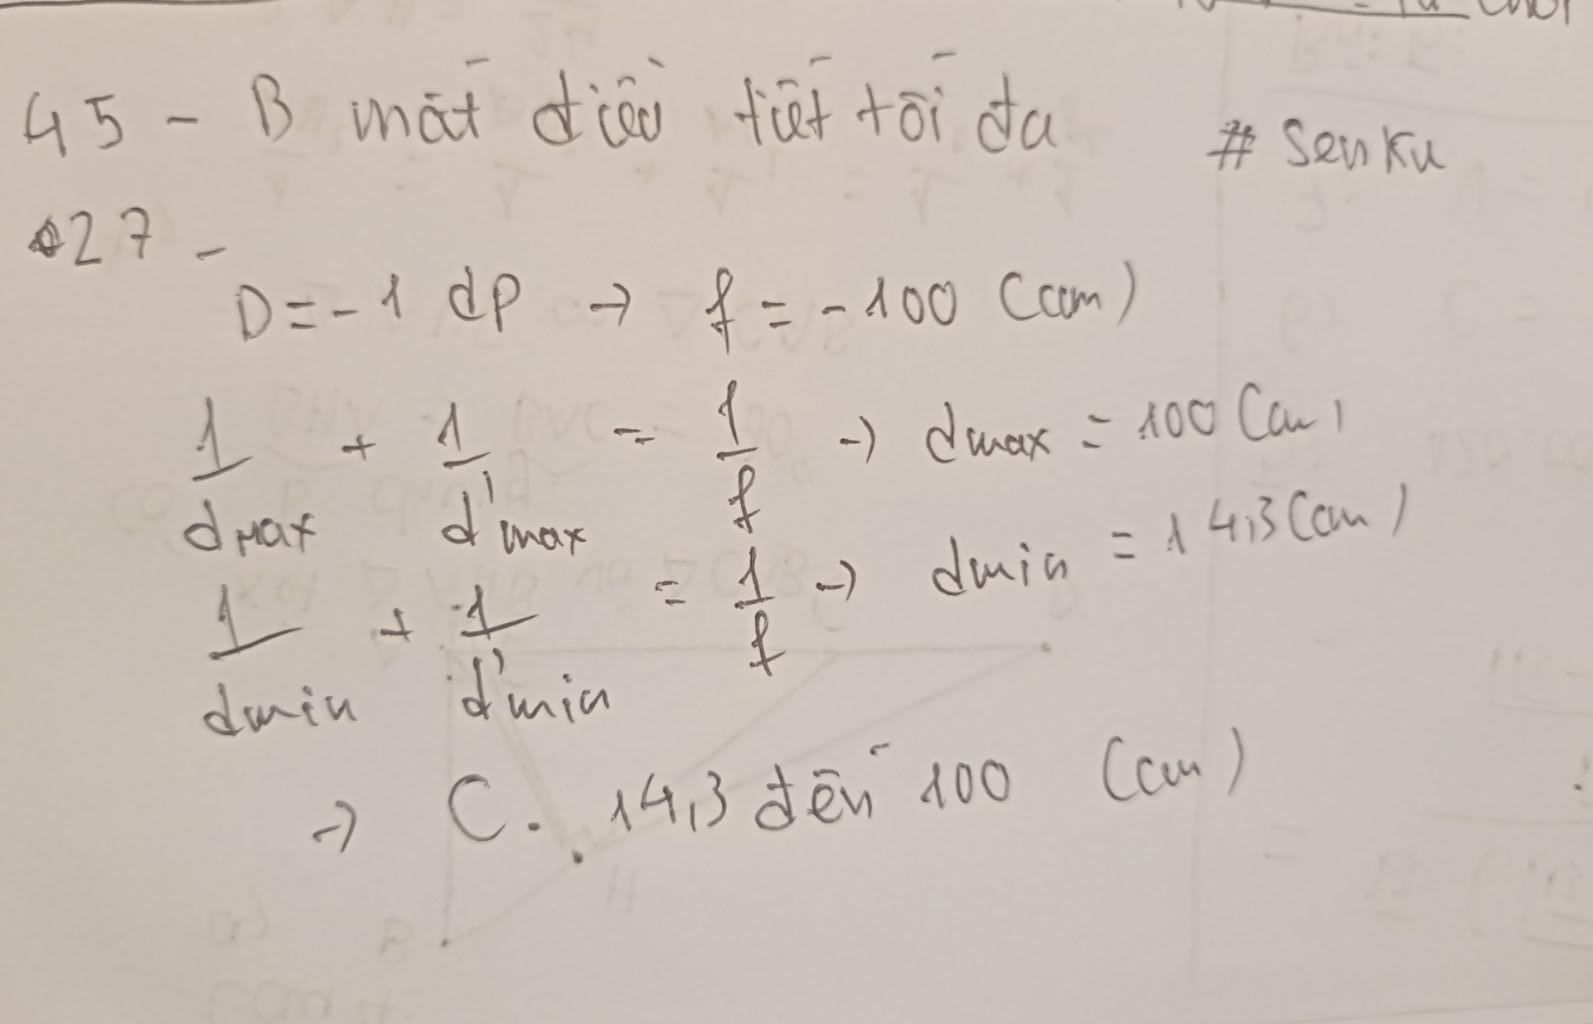 45 - B mắt điều tiết tối đa # Senku
27 -
D = -1 dp → f = -100 (cm)
1/dmax + 1/d'max = 1/f → dmax = 100 (cm)
1/dmin + 1/d'min = 1/f → dmin = 14,3 (cm)
→ C. 14,3 đến 100 (cm)